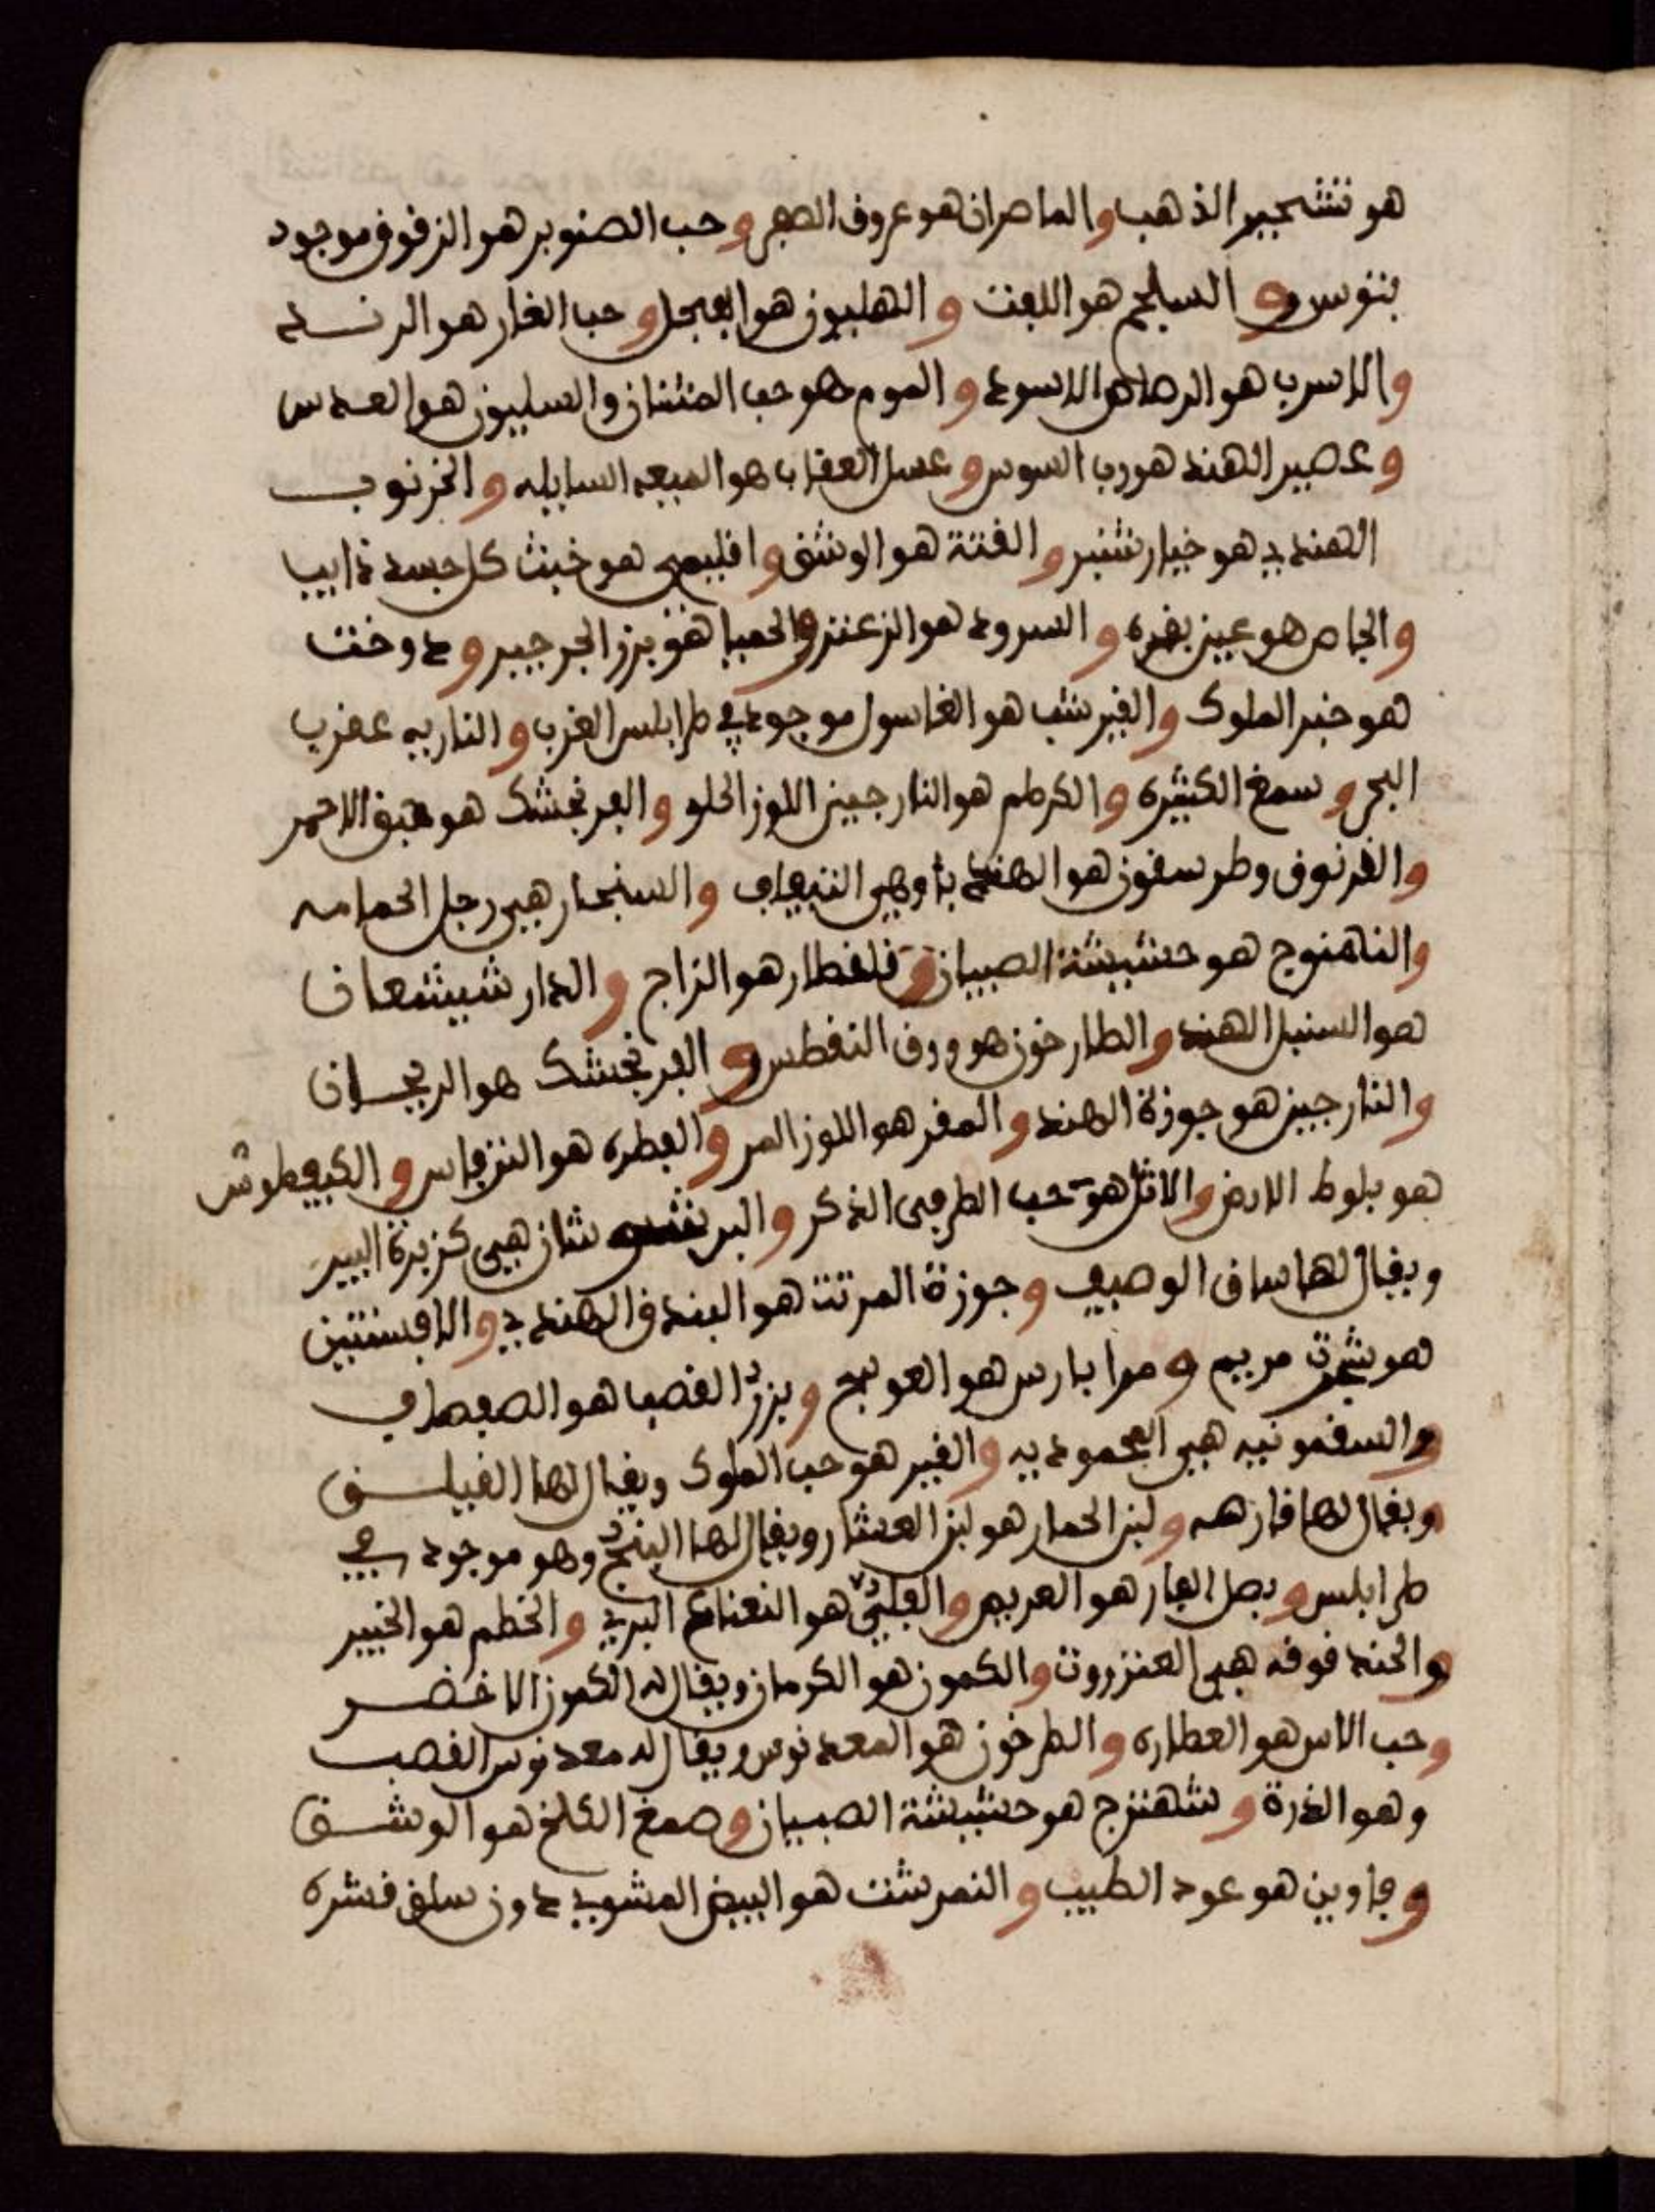 هو تشجير الذهب والماصران هو عروق الصفر و حب الصنوبر هو الزقوق موجود
بتونس و السلجم هو اللفت و الهليون هو الفجل و حب الغار هو الرند
والاسرب هو الرصاص الاسود و الموم هو حب المثنان والسليون هو العدس
و عصير الهند هو رب السوس و عسل العقاب هو الميعه السايله و الخرنوب
الهندي هو خيار شنبر و الفتة هو الوشق و اقليمي هو خبث كل جسد ذايب
والجاص هو عين بقره و السرود هو الزعتر والحمبا هو بزر الجرجير و دوخت
هو خبز الملوك والقيرشب هو الغاسول موجود في طرابلس الغرب و الناريه عقرب
البحر و سمغ الكثيره و الكرطم هو النارجين اللوز الحلو و الفرنجشك هو حبق الاحمر
والقرنوق وطرسقون هو الهندبا وهي التيفاف و السنجار هي رجل الحمامه
والناهنوج هو حشيشة الصبيان و قلقطار هو الزاج و الدار شيشعان
هو السنبل الهند والطارخون هو ورق التفطس و الفرنجشك هو الريحان
والنارجين هو جوزة الهند و المقر هو اللوز المر و الفطره هو الترفاس و الكيفطوش
هو بلوط الارض والاثل هو حب الطرفى الذكر و البر شان هي كزبرة البير
ويقال لها ساق الوصيف و جوزة المرتت هو البندق الهندي و الافسنتين
هو شجرة مريم و مرا بارس هو العوسج و بزر القصبا هو الصفصاف
والسقمونيه هي المحموديه والقير هو حب الملوك ويقال لها الفيلسق
ويقال لها فازهر و لبن الحمار هو لبن العشار ويقال لها البنج وهو موجود في
طرابلس و بصل الفار هو الفريص و الفليثى هو النعناع البري و الخطم هو الخبيز
والحند قوقه هي العنزروت والكمون هو الكرمان ويقال له الكمون الاخضر
وحب الاس هو العطاره و الطرخون هو المعدنوس ويقال له معدنوس القصب
وهو الذرة و شهترج هو حشيشة الصبيان و صمغ الكلخ هو الوشق
و فاوين هو عود الطيب و النمرشت هو البيض المشوي دون سلق قشره